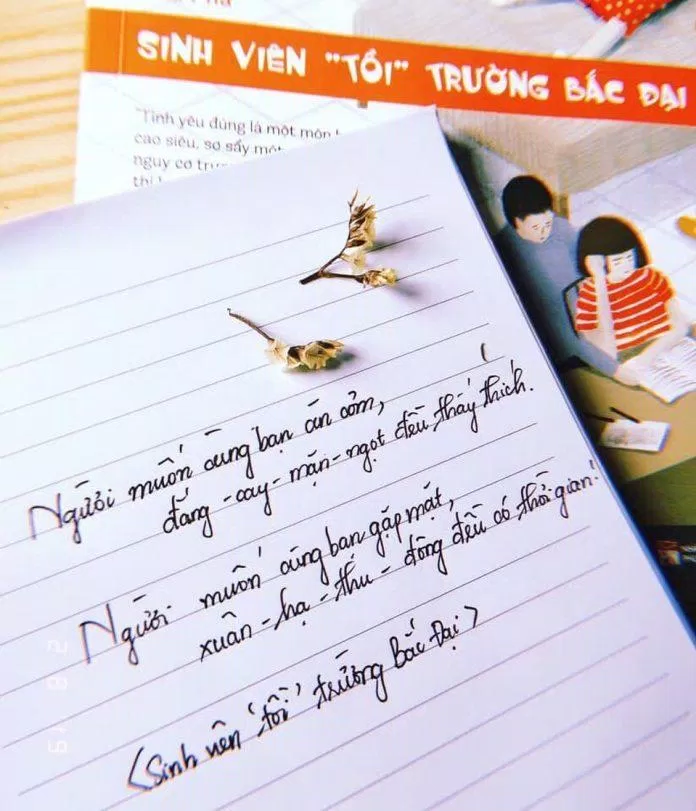 SINH VIÊN "TỒI" TRƯỜNG BẮC ĐẠI
"Tình yêu đúng là một môn
cao siêu, sơ sẩy
nguy cơ
Người muốn cùng bạn ăn cơm,
đắng - cay - mặn - ngọt đều thấy thích.
Người muốn cùng bạn gặp mặt,
xuân - hạ - thu - đông đều có thời gian!
<Sinh viên 'tồi' trường Bắc Đại>
2 8 19